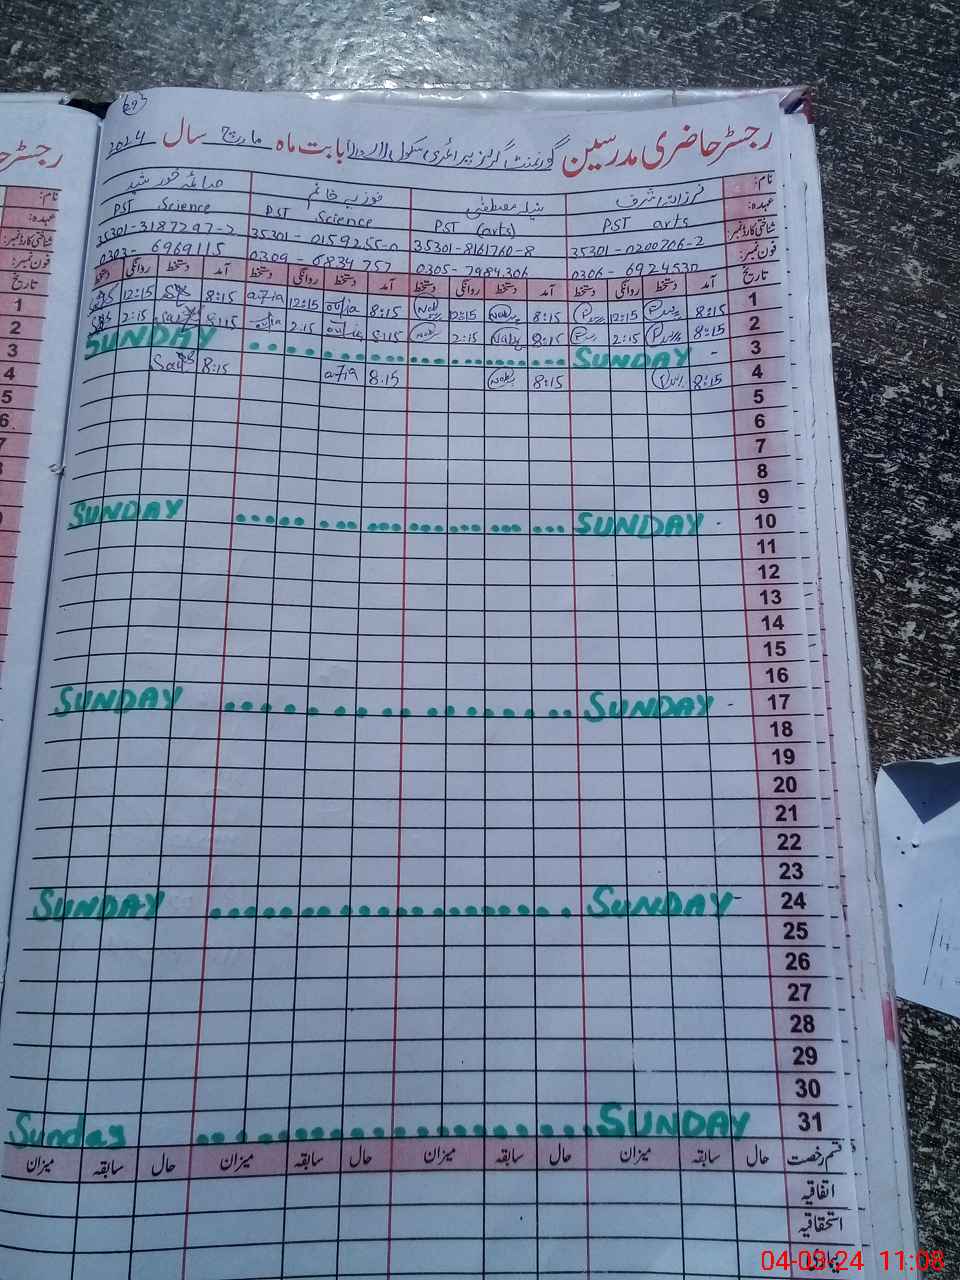 رجسٹر حاضری مدرسین گورنمنٹ گرلز پرائمری سکول بابت ماہ مارچ سال 2024
نام: فرزانہ اشرف نبیلہ مصطفی فوزیہ خانم صائمہ خورشید
عہدہ: PST arts PST (arts) PST Science PST Science
شناختی کارڈ نمبر: 35301-0200706-2 35301-8161760-8 35301-0159255-0 35301-3187297-2
فون نمبر: 0306-6924530 0305-7984306 0309-6834757 0303-6969115
تاریخ آمد دستخط روانگی دستخط آمد دستخط روانگی دستخط آمد دستخط روانگی دستخط آمد دستخط روانگی دستخط
1 8:15 12:15 8:15 12:15 8:15 12:15 8:15 12:15
2 8:15 2:15 8:15 2:15 8:15 2:15 8:15 2:15
3 SUNDAY SUNDAY
4 8:15 8:15 8.15 8:15
5
6
7
8
9
10 SUNDAY SUNDAY
11
12
13
14
15
16
17 SUNDAY SUNDAY
18
19
20
21
22
23
24 SUNDAY SUNDAY
25
26
27
28
29
30
31 SUNDAY Sunday
قسم رخصت حال سابقہ میزان حال سابقہ میزان حال سابقہ میزان حال سابقہ میزان
اتفاقیہ
استحقاقیہ
بیماری
04-03-24 11:08